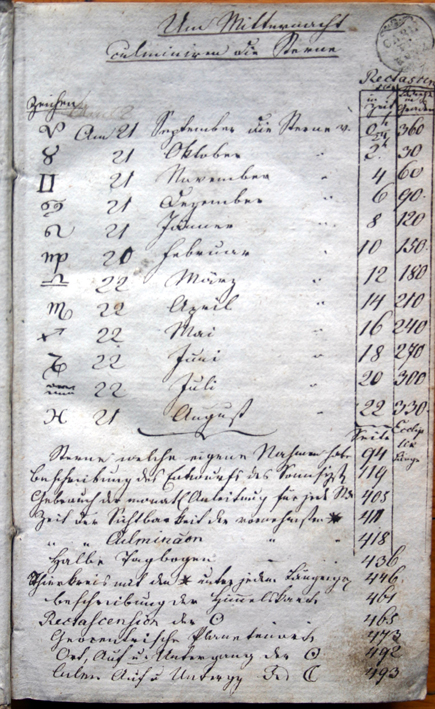 Um Mitternacht
culminiren die Sterne
Rectascen
Zeichen in Zeit Grade
♈ Am 21 September die Sterne v. 0 360
♉ 21 Oktober " 2 30
♊ 21 November " 4 60
♋ 21 Dezember " 6 90
♌ 21 Jänner " 8 120
♍ 20 Februar " 10 150
♎ 22 März " 12 180
♏ 22 April " 14 210
♐ 22 Mai " 16 240
♑ 22 Juni " 18 270
♒ 22 Juli " 20 300
♓ 21 August " 22 330
Seite
Sterne welche eigene Nahmen 94
Beschreibung des Entwurfs des 119
Gebrauch der monatl. Anleitung für jede 405
Zeit der Sichtbarkeit der vornehmsten * 411
" " Culminaon " 418
Halbe Tagbogen 436
Thierkreis mit den * unter jedem 446
Beschreibung der Himmelskarte 461
Rectascension der ☉ 465
Geocentrische Planetenort 473
Ort, Auf u. Untergang der ☉ 492
Culm Auf u Unterg ☾ 493